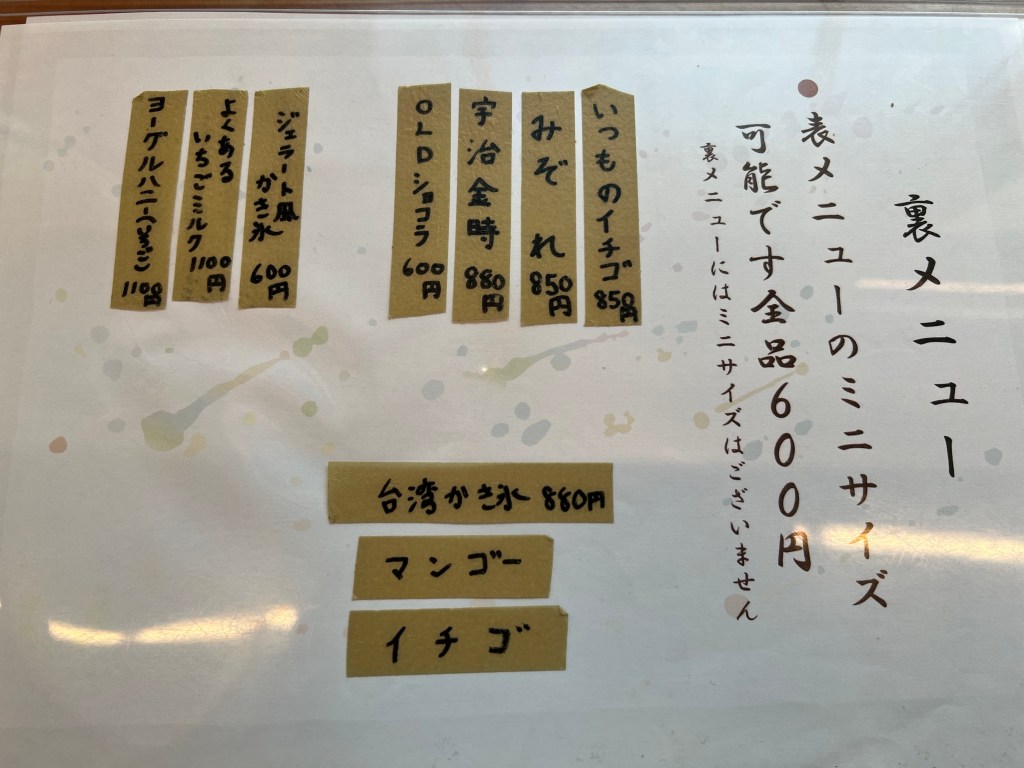 裏メニュー
表メニューのミニサイズ
可能です全品600円
裏メニューにはミニサイズはございません
いつものイチゴ 850円
みぞれ 850円
宇治金時 880円
OLDショコラ 600円
ジェラート風
かき氷 600円
よくある
いちごミルク 1100円
ヨーグルハニーいちご 1100円
台湾かき氷 880円
マンゴー
イチゴ